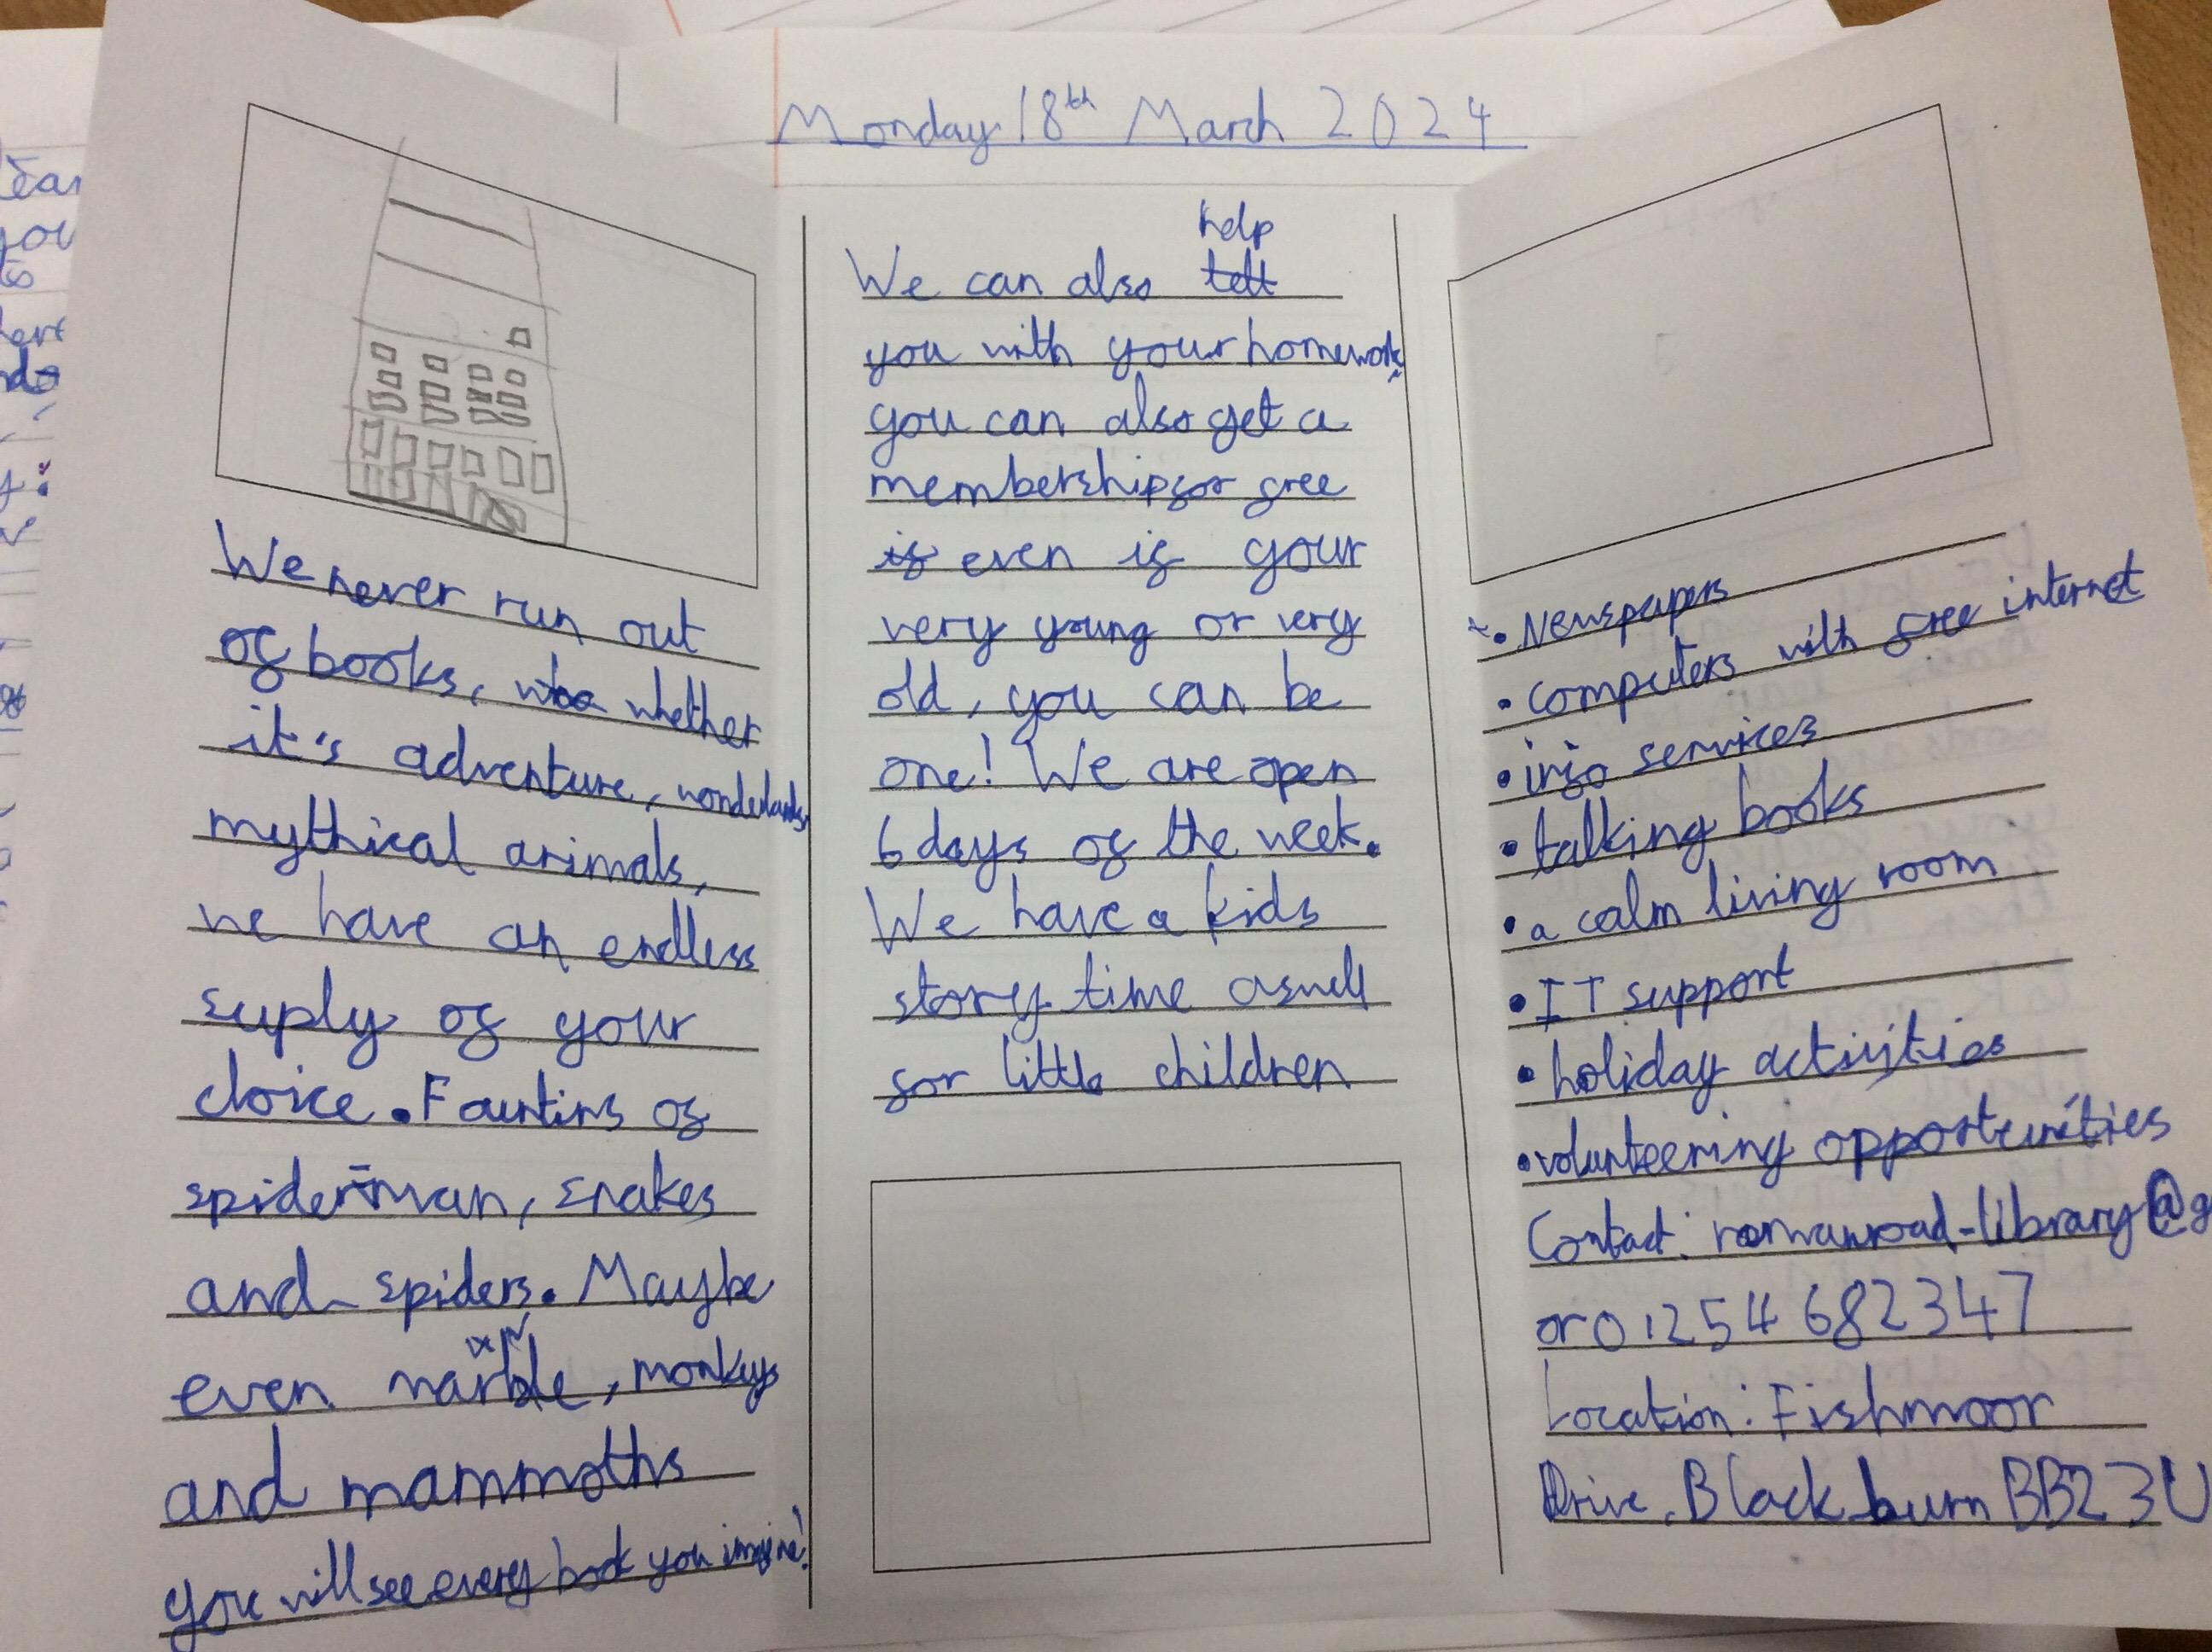 Monday 18th March 2024
We never run out
of books, whether
it's adventure, wonderlands,
mythical animals,
we have an endless
suply of your
choice. Fauntins of
spider-man, snakes
and spiders. Maybe
even marble, monkeys
and mammoths
you will see every book you imagine!
help
We can also tell
you with your homework,
you can also get a
membership for free
if even if your
very young or very
old, you can be
one! We are open
6 days of the week.
We have a kids
story time aswell
for little children
• Newspapers
• computers with free internet
• info services
• talking books
• a calm living room
• IT support
• holiday activities
• volunteering opportunities
Contact: romanroad-library@g
or 01254 682347
Location: Fishmoor
Drive, Blackburn BB2 3U